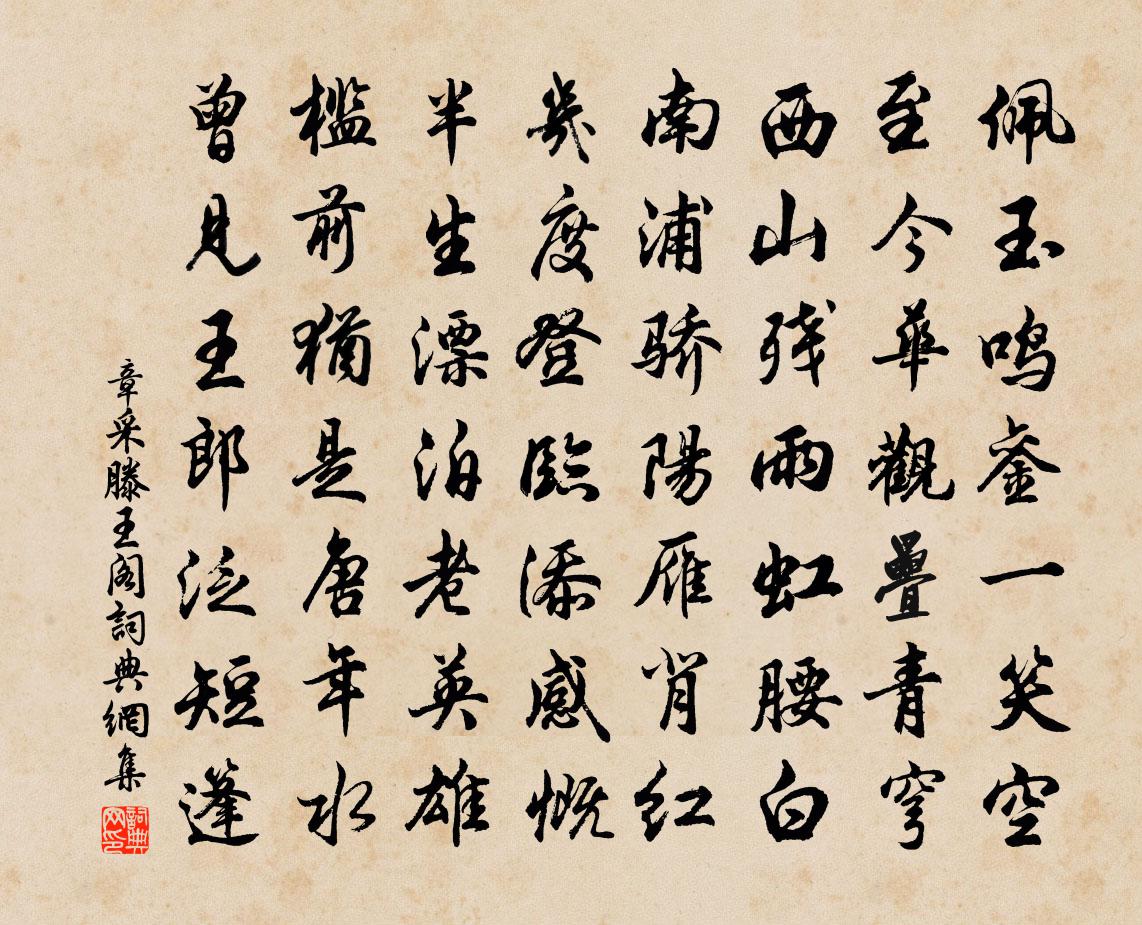 佩玉鸣銮一笑空
至今華觀疊青穹
西山残雨虹腰白
南浦骄陽雁背红
幾度登臨添感慨
半生漂泊老英雄
檻前猶是唐年水
曾見王郎泛短蓬
章采滕王阁詞典網集
詞典网印